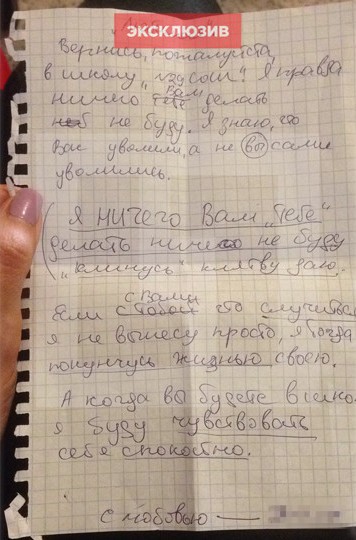 ЭКСКЛЮЗИВ
Вернись, пожалуйста
в школу, "изусош". Я правда
Вам
ничего тебе делать
не буду. Я знаю, что
Вас уволили, а не вы сами
уволились.
Я ничего Вам "тебе"
делать ничего не буду
"клянусь" клятву даю.
с Вами
Если с тобой что случиться
я не вынесу просто, я тогда
покунчусь жизнью своею.
А когда вы будете в шко
я буду чувствовать
себя спокойно.
с любовью —